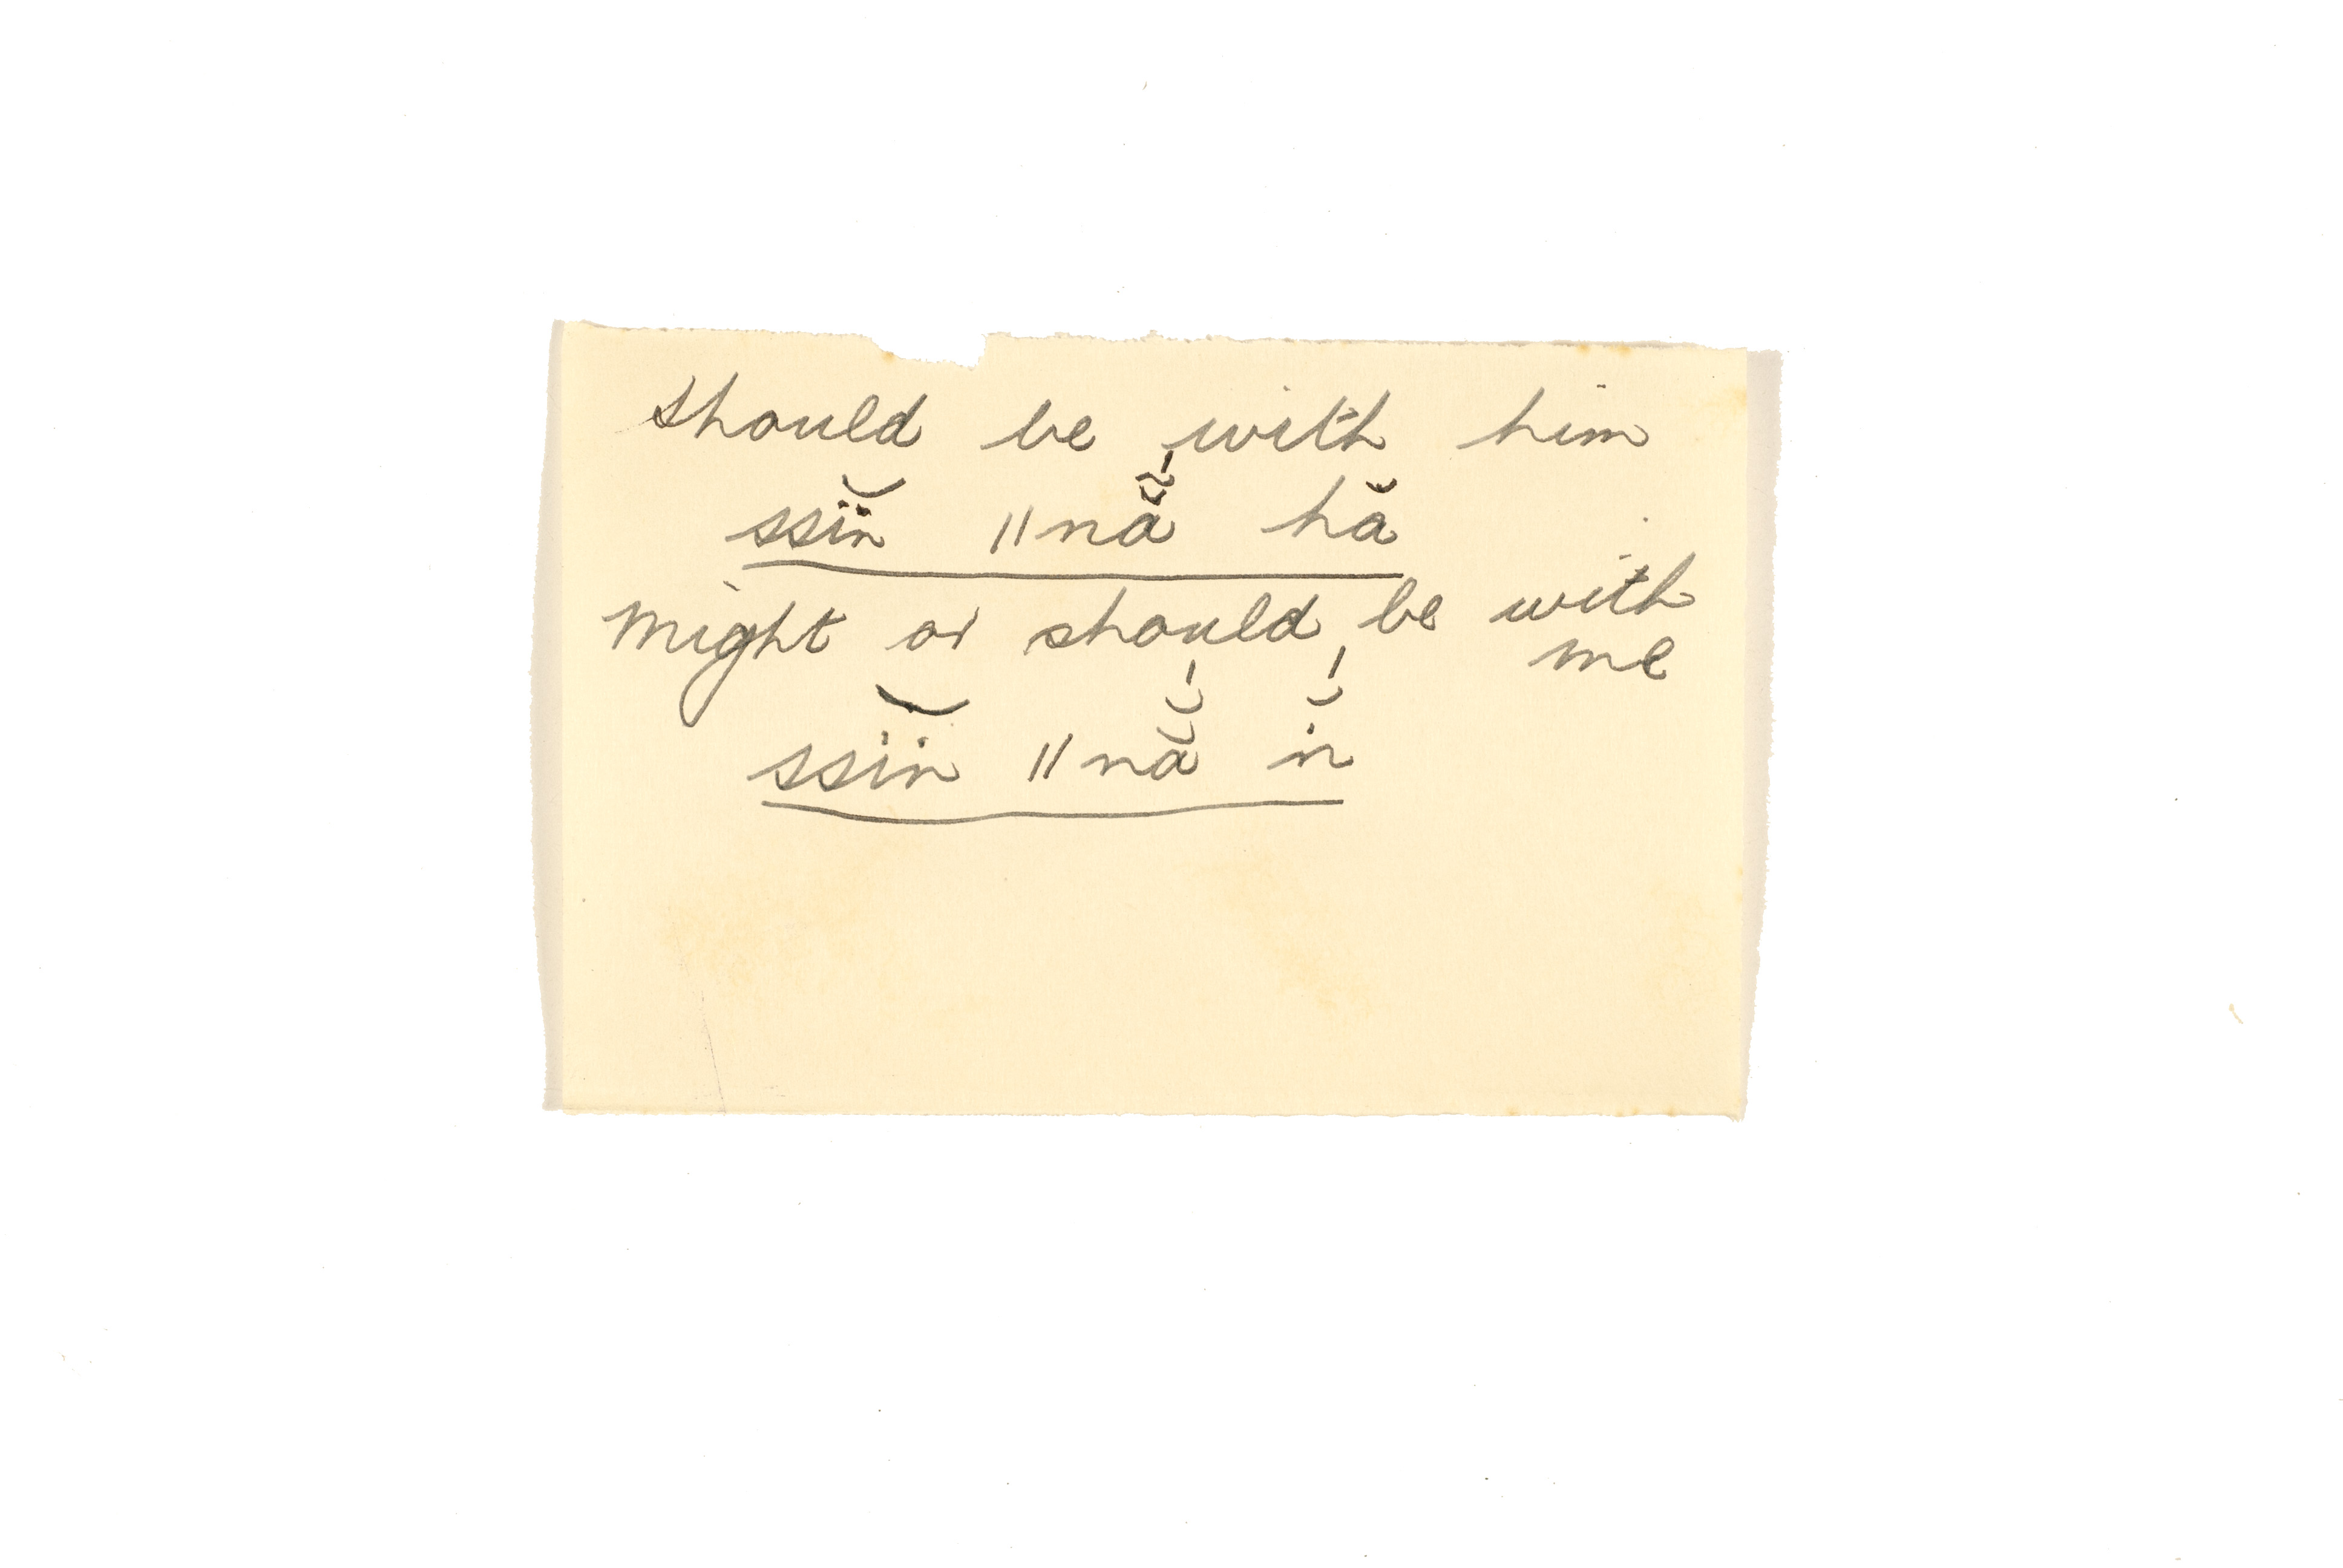 should be with him
ssĭĭn ǁnă̆́ hă
might or should be with
me
ssĭĭn ǁnă̆́ ń̆